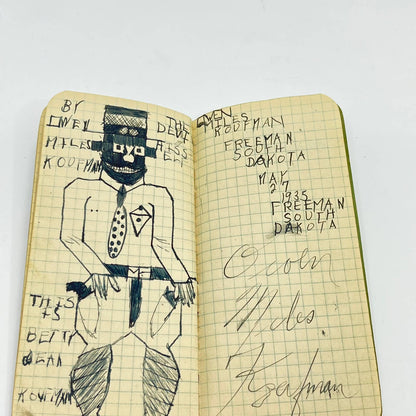 BY
OWEN
MILES
KOUFMAN
THE
THIS
IS
BETTY
JEAN
KOUFMAN
OVEN
MILES
KOUFMAN
FREEMAN
SOUTH
DAKOTA
MAY
27
1935
FREEMAN
SOUTH
DAKOTA
Owen
Miles